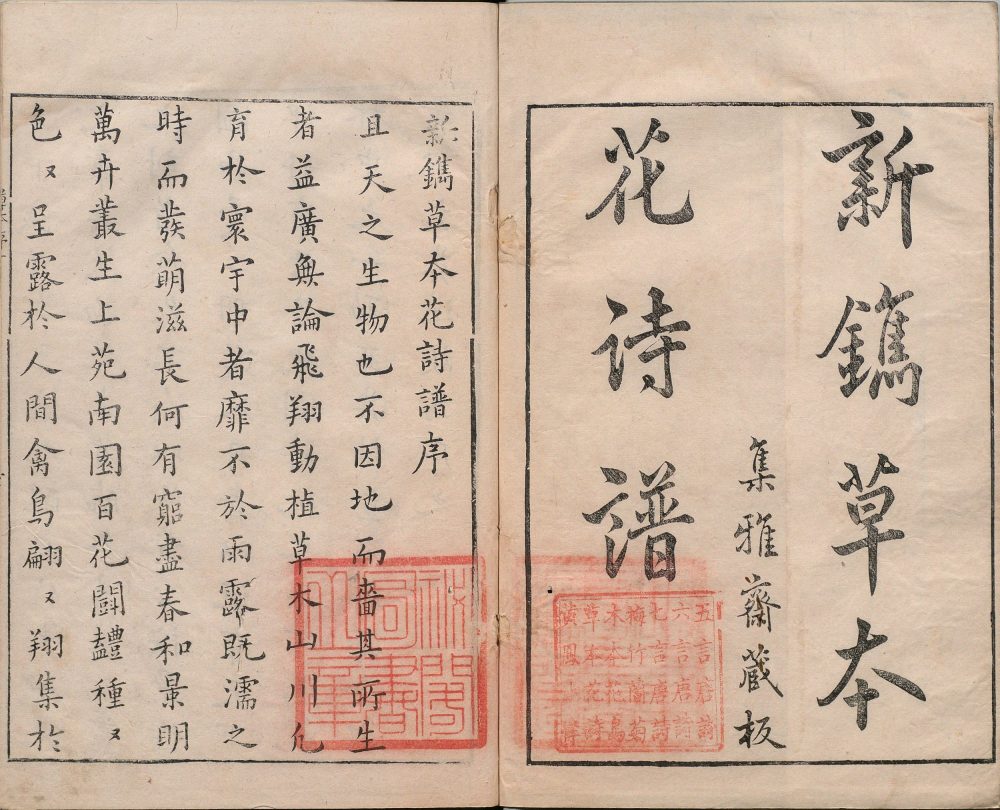 新鐫草本
花诗譜
集雅齋藏板
五言唐詩
六言唐詩
七言唐詩
梅竹蘭菊
木本花鳥
草本花詩
新鐫草本花詩譜序
且天之生物也不因地而嗇其所生
者益廣無論飛翔動植草木山川凡
育於寰宇中者靡不於雨露既濡之
時而發萌滋長何有窮盡春和景明
萬卉叢生上苑南園百花鬪豔種〻
色〻呈露於人間禽鳥翩〻翔集於